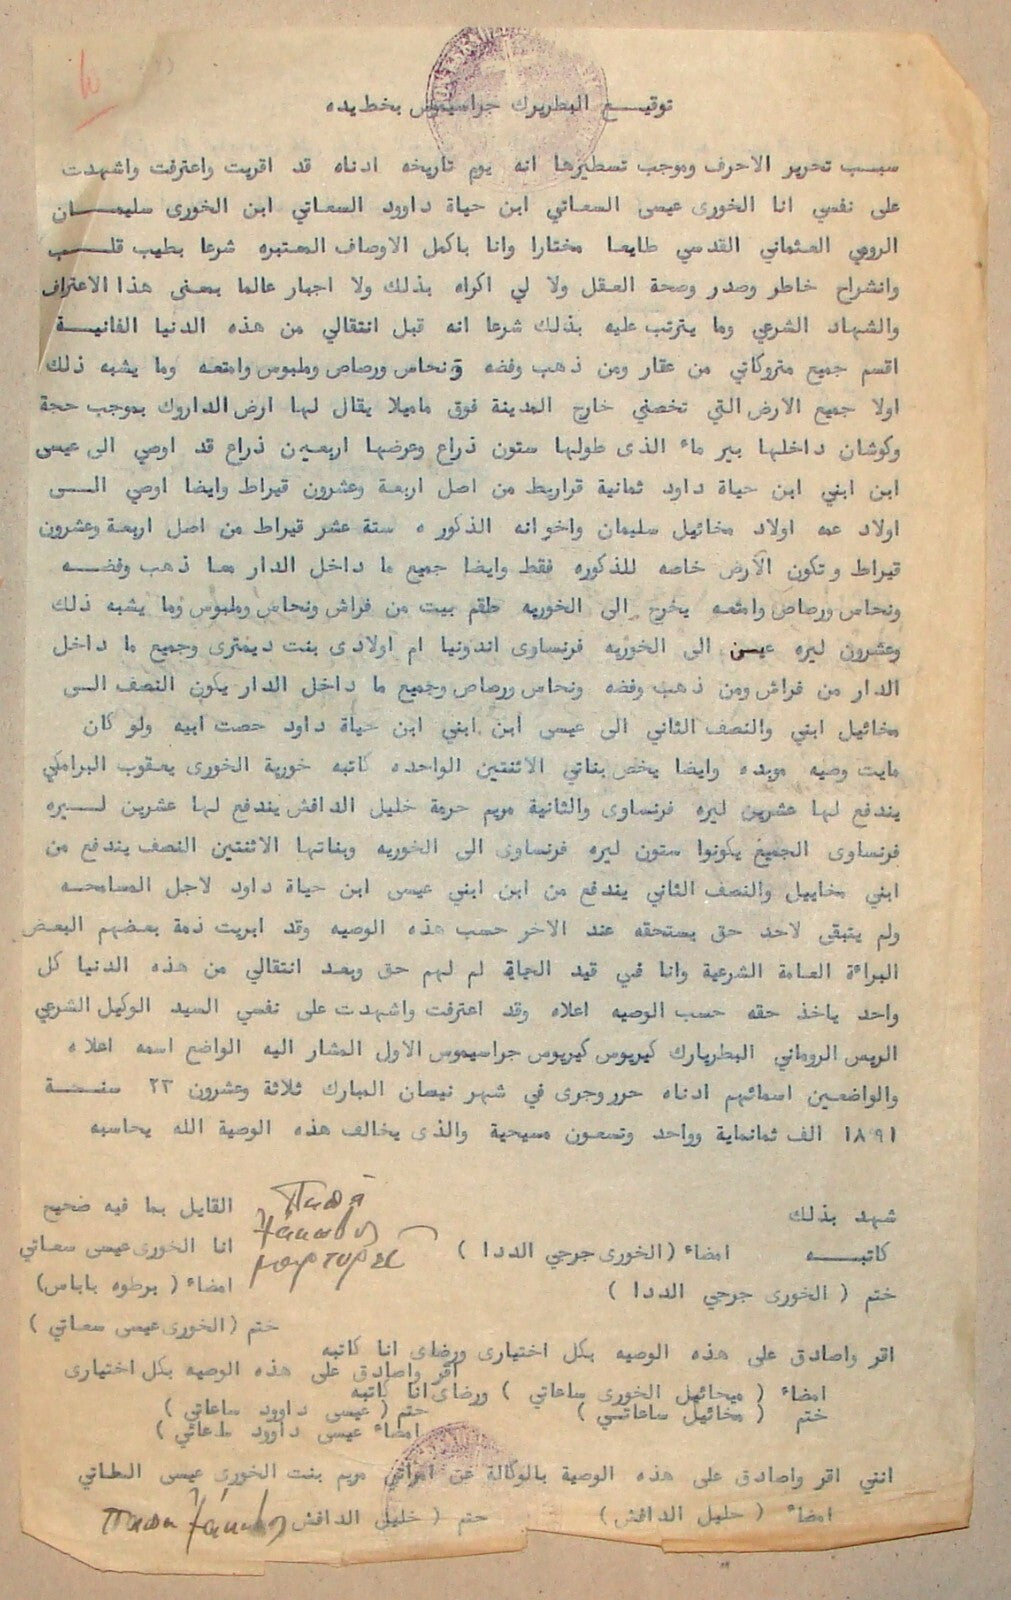 توقيع البطريرك جراسيموس بخط يده
سبب تحرير الاحرف وموجب تسطيرها انه يوم تاريخه ادناه قد اقريت واعترفت واشهدت
على نفسي انا الخورى عيسى السعاتي ابن حياة داوود السعاتي ابن الخورى سليمان
الرومي العثماني القدسي طايعا مختارا وانا باكمل الاوصاف المعتبره شرعا بطيب قلب
وانشراح خاطر وصدر وصحة العقل ولا لي اكراه بذلك ولا اجبار عالما بمعنى هذا الاعتراف
والشهاد الشرعي وما يترتب عليه بذلك شرعا انه قبل انتقالي من هذه الدنيا الفانية
اقسم جميع متروكاتي من عقار ومن ذهب وفضه ونحاس ورصاص وملبوس وامتعه وما يشبه ذلك
اولا جميع الارض التي تخصني خارج المدينة فوق ماميلا يقال لها ارض الداروك بموجب حجة
وكوشان داخلها بير ماء الذى طولها ستون ذراع وعرضها اربعين ذراع قد اوصي الى عيسى
ابن ابني ابن حياة داود ثمانية قراريط من اصل اربعة وعشرون قيراط وايضا اوصي الى
اولاد عمه اولاد مخائيل سليمان واخوانه الذكوره ستة عشر قيراط من اصل اربعة وعشرون
قيراط وتكون الارض خاصه للذكوره فقط وايضا جميع ما داخل الدار معا ذهب وفضه
ونحاس ورصاص وامتعه يخرج الى الخوريه طقم بيت من فراش ونحاس وملبوس وما يشبه ذلك
وعشرون ليره عيسى الى الخوريه فرنساوى اندونيا ام اولادى بنت ديمترى وجميع ما داخل
الدار من فراش ومن ذهب وفضه ونحاس ورصاص وجميع ما داخل الدار يكون النصف الى
مخائيل ابني والنصف الثاني الى عيسى ابن ابني ابن حياة داود حصت ابيه ولو كان
مايت وصيه موبده وايضا يخص بناتي الاثنتين الواحده كاتبه خورية الخورى يعقوب البرامكي
يندفع لها عشرين ليره فرنساوى والثانية مريم حرمة خليل الدافش يندفع لها عشرين ليره
فرنساوى الجميع يكونوا ستون ليره فرنساوى الى الخوريه وبناتها الاثنتين النصف يندفع من
ابني مخاييل والنصف الثاني يندفع من ابن ابني عيسى ابن حياة داود لاجل المسامحه
ولم يتبقى لاحد حق يستحقه عند الاخر حسب هذه الوصيه وقد ابريت ذمة بعضهم البعض
البراءة العامة الشرعية وانا في قيد الحياة لم لهم حق وبعد انتقالي من هذه الدنيا كل
واحد ياخذ حقه حسب الوصيه اعلاه وقد اعترفت واشهدت على نفسي السيد الوكيل الشرعي
الريس الروماني البطريارك كيريوس كيريوس جراسيموس الاول المشار اليه الواضع اسمه اعلاه
والواضعين اسمائهم ادناه حرر وجرى في شهر نيسان المبارك ثلاثة وعشرون ٢٣
١٨٩١ الف ثمانماية وواحد وتسعون مسيحية والذى يخالف هذه الوصية الله يحاسبه
شهد بذلك
القايل بما فيه صحيح
كاتبه امضاء (الخورى جرجي الددا)
انا الخورى عيسى سعاتي
ختم (الخورى جرجي الددا)
امضاء (برطوه باباس)
ختم (الخورى عيسى سعاتي)
اقر واصادق على هذه الوصيه بكل اختيارى ورضاى انا كاتبه
اقر واصادق على هذه الوصيه بكل اختيارى
ورضاى انا كاتبه
امضاء (ميحائيل الخورى ساعاتي)
ختم (مخائيل ساعاتسي)
ختم (عيسى داوود ساعاتي)
امضاء عيسى داوود
انني اقر واصادق على هذه الوصية بالوكالة عن امراتي مريم بنت الخورى عيسى
امضاء (خليل الدافش) ختم (خليل الدافش